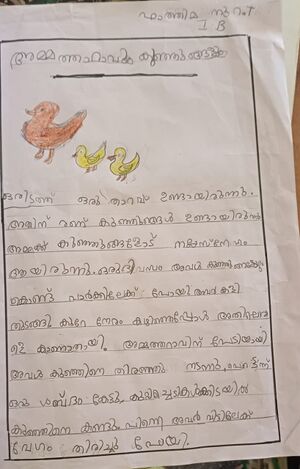 ഫാത്തിമ നൂറ.T
I B
അമ്മത്താറാവും കുഞ്ഞുങ്ങളും
ഒരിടത്ത് ഒരു താറാവ് ഉണ്ടായിരുന്നു.
അതിന് രണ്ട് കുഞ്ഞുങ്ങൾ ഉണ്ടായിരുന്നു
അമ്മക്ക് കുഞ്ഞുങ്ങളോട് നല്ലസ്നേഹം
ആയിരുന്നു. ഒരുദിവസം അവൾ കുഞ്ഞുങ്ങളെയും
കൊണ്ട് പാർക്കിലേക്ക് പോയി അവർ കളി
തുടങ്ങി കുറേ നേരം കഴിഞ്ഞപ്പോൾ അതിലൊരാ
ളെ കാണാതായി. അമ്മത്താറാവിന് പേടിയായി
അവൾ കുഞ്ഞിനെ തിരഞ്ഞു നടന്നു. പെട്ടന്ന്
ഒരു ശബ്ദം കേട്ടു. കുറ്റിച്ചെടികൾക്കിടയിൽ
കുഞ്ഞിനെ കണ്ടു. പിന്നെ അവർ വീട്ടിലേക്ക്
വേഗം തിരിച്ചു പോയി.